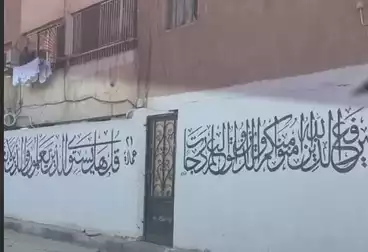 يرفع الله الذين آمنوا منكم والذين أوتوا العلم درجات
قل هل يستوي الذين يعلمون والذين